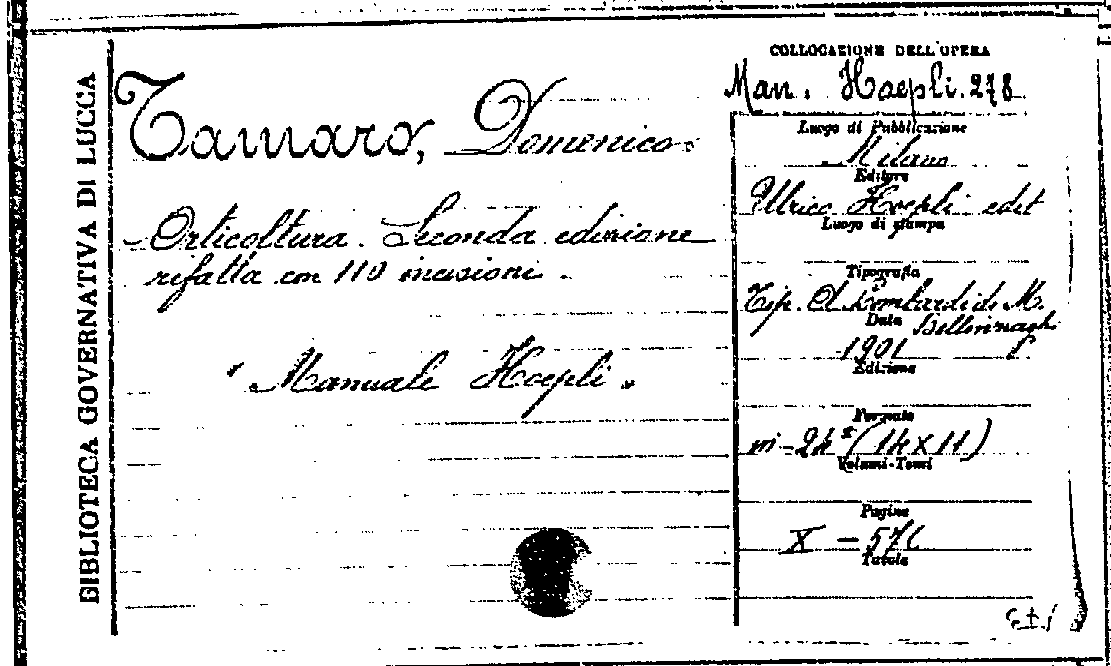 BIBLIOTECA GOVERNATIVA DI LUCCA
Tamaro, Domenico.
Orticoltura. Seconda edizione
rifatta con 110 incisioni.
"Manuale Hoepli"
COLLOCAZIONE DELL'OPERA
Man. Hoepli. 278
Luogo di Pubblicazione
Milano
Editore
Ulrico Hoepli edit
Luogo di stampa
Tipografia
Tip. A. Lombardi di M.
Bellinzaghi
Data
1901
Edizione
Formato
in-24° (14 x 11)
Volumi-Tomi
Pagine
X - 576
Tavole